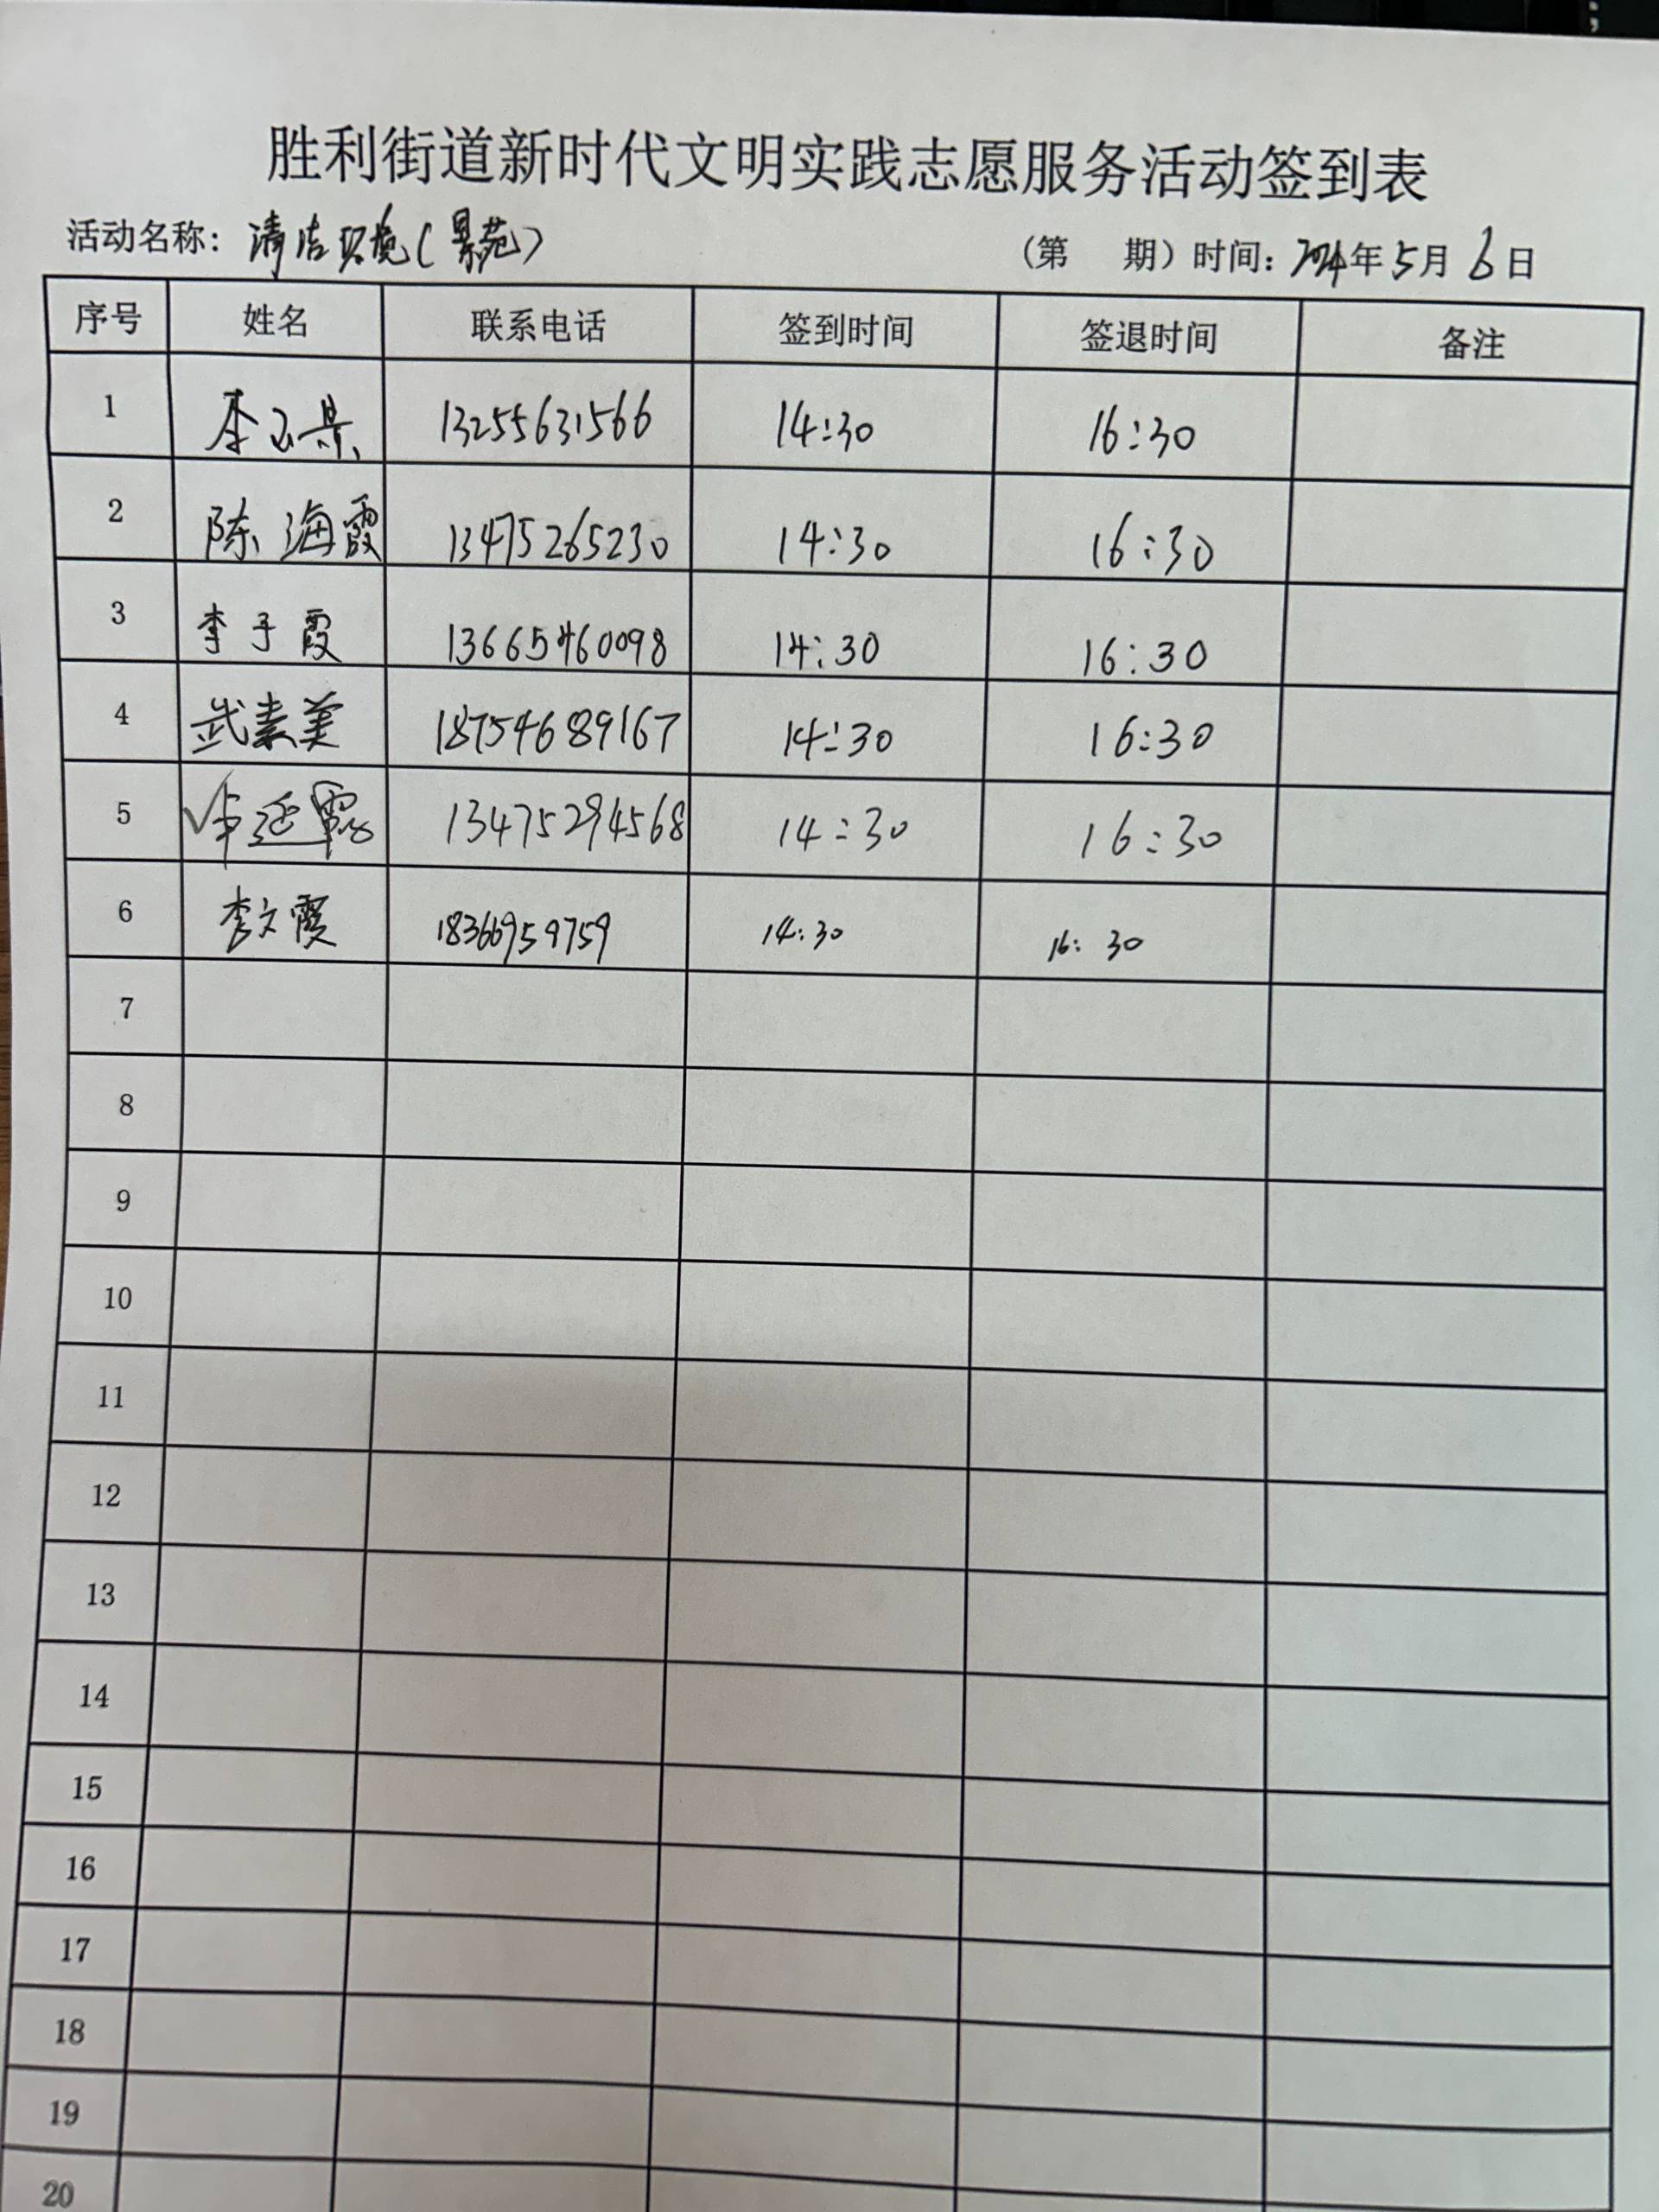 胜利街道新时代文明实践志愿服务活动签到表
活动名称：清洁环境（景苑） （第 期）时间：2024年5月6日
序号 姓名 联系电话 签到时间 签退时间 备注
1 李玉景 13255631566 14:30 16:30
2 陈海霞 13475265230 14:30 16:30
3 李于霞 13665460098 14:30 16:30
4 武素美 18754689167 14:30 16:30
5 13475294568 14:30 16:30
6 李文霞 18366959759 14:30 16:30
7
8
9
10
11
12
13
14
15
16
17
18
19
20